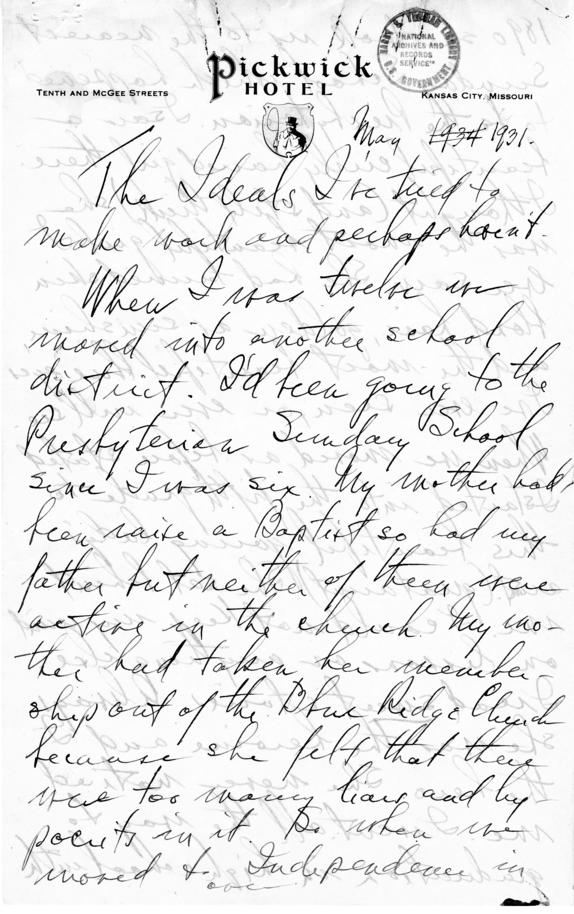 HARRY S. TRUMAN LIBRARY
NATIONAL
ARCHIVES AND
RECORDS
SERVICE
U.S. GOVERNMENT
Pickwick
HOTEL
TENTH AND MCGEE STREETS
KANSAS CITY, MISSOURI
May 1934 1931.
The Ideals I've tried to
make work and perhaps havent.
When I was twelve we
moved into another school
district. I'd been going to the
Presbyterian Sunday School
since I was six. My mother had
been raise a Baptist so had my
father but neither of them were
active in the church. My mo-
ther had taken her member-
ship out of the Blue Ridge Church
because she felt that there
were too many liars and hy-
pocrits in it. So when we
moved to Independence in